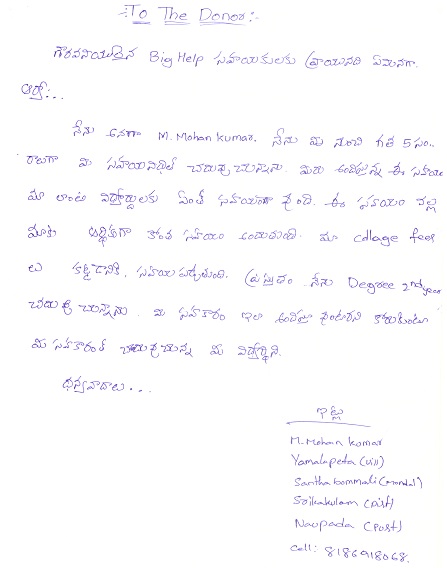 :To The Donor:-
గౌరవనీయులైన Big Help సహాయకులకు వ్రాయునది ఏమనగా.
ఆర్యా:...
నేను అనగా M. Mohan kumar. నేను మీ నుంచి గత 5 సం..
రాలుగా మీ సహాయనిధితో చదువుచున్నాను. మీరు అందిస్తున్న ఈ సహాయం
మా లాంటి విద్యార్థులకు ఎంతో సహాయంగా ఉంది. ఈ సహాయం వల్ల
మాకు ఆర్థికంగా కొంత సహాయం అందుతుంది. మా collage fees
లు కట్టడానికి, సహాయపడుతుంది. ప్రస్తుతం నేను Degree 2nd year
చదువుచున్నాను. మీ సహకారం ఇలా అందిస్తూ ఉంటారని కోరుకుంటూ
మీ సహకారంతో చదువుచున్న మీ విద్యార్థిని.
ధన్యవాదాలు...
ఇట్లు
M. Mohan kumar
Yamalapeta (vill)
Santhabommali (mandal)
Srikakulam (Dist)
Naupada (Post)
Cell: 8186918068.